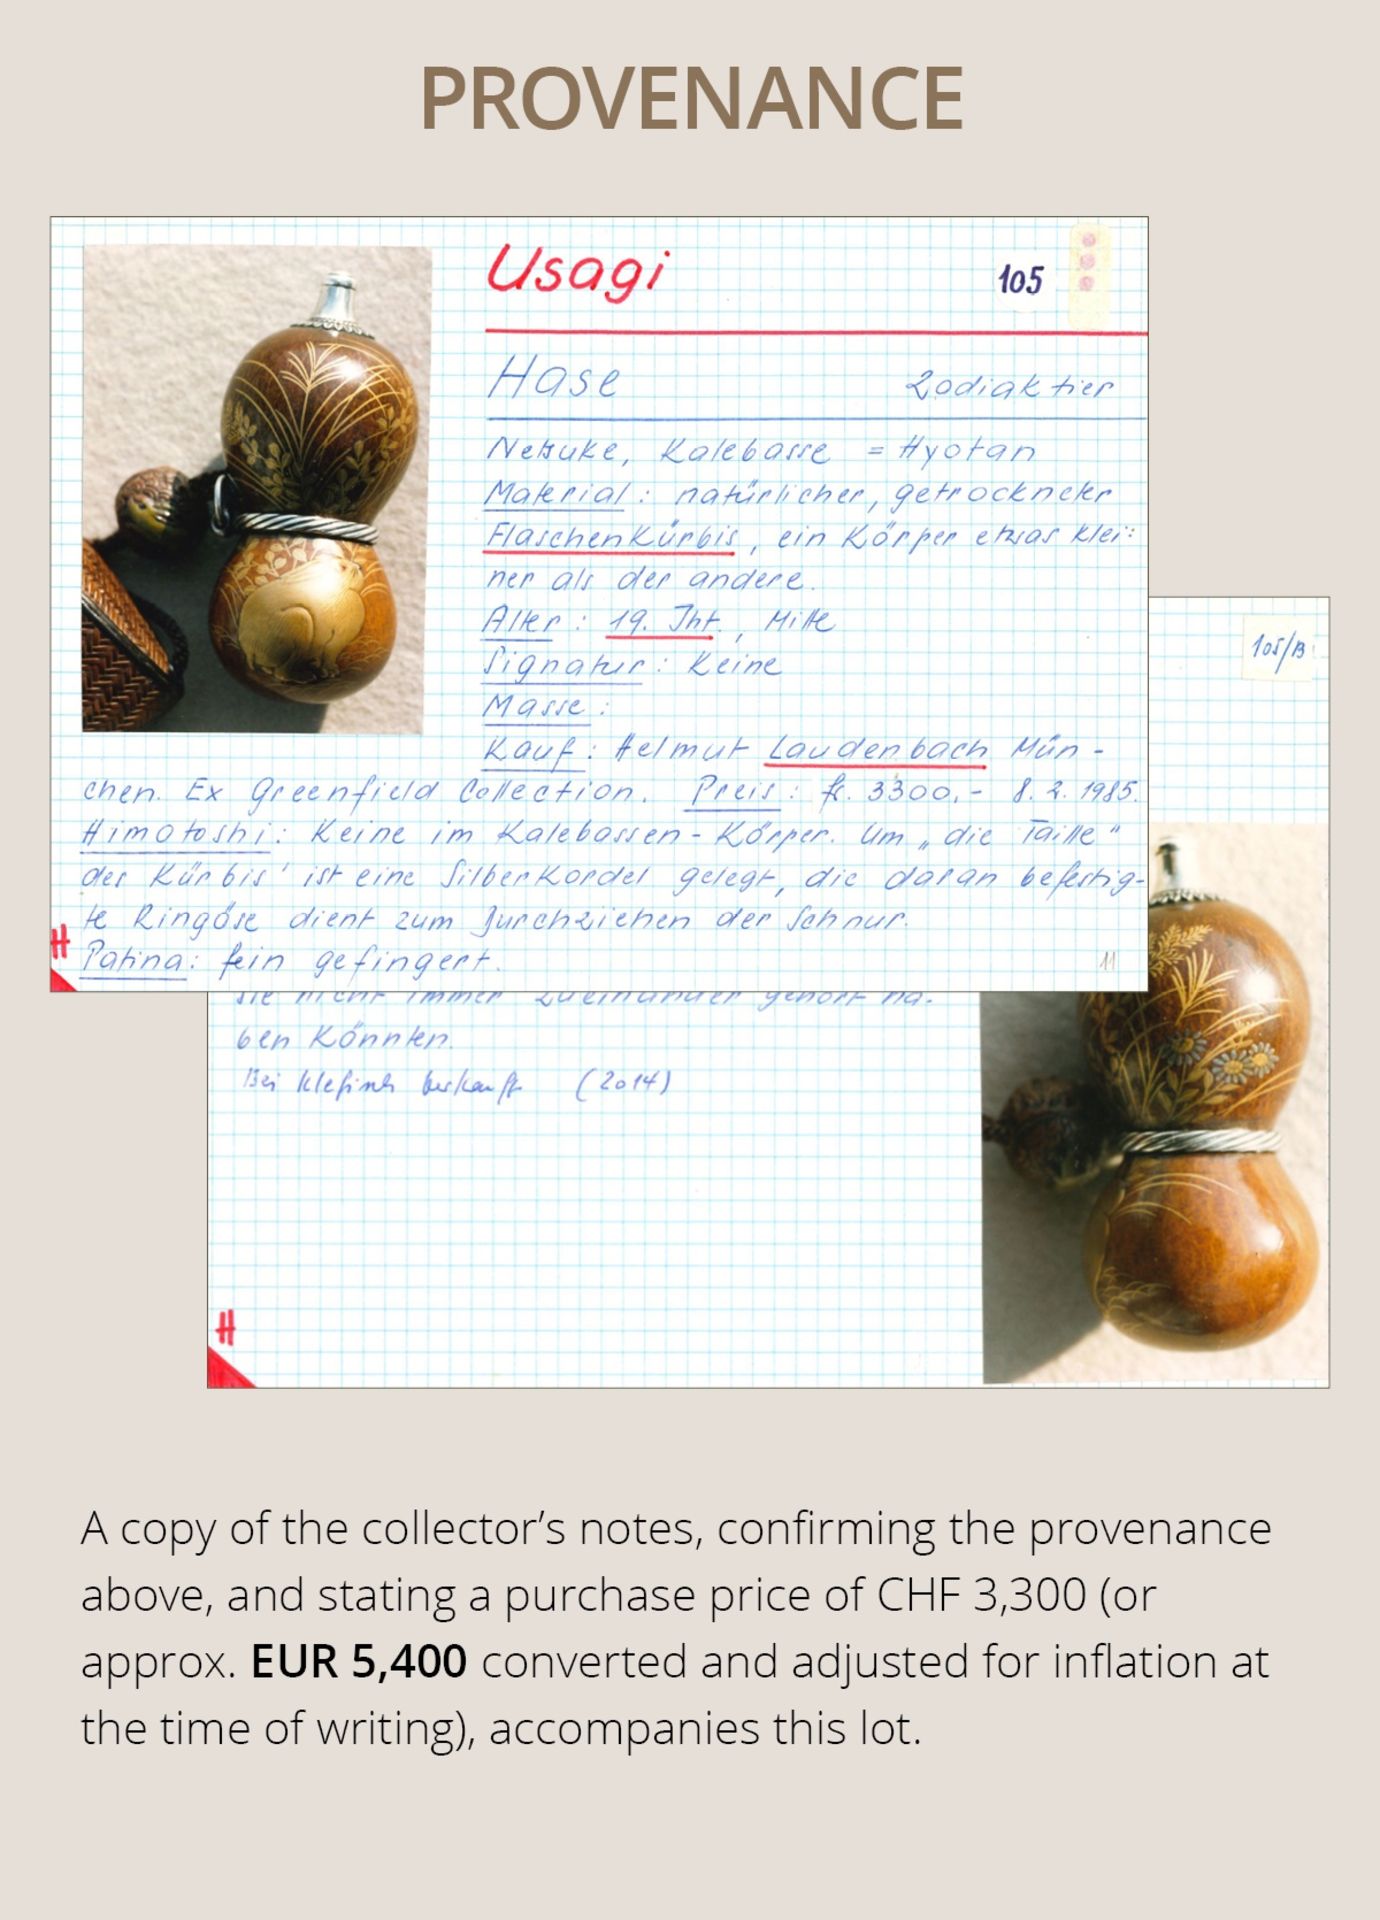 PROVENANCE
Usagi
105
Hase Zodiaktier
Netsuke, Kalebasse = Hyotan
Material: natürlicher, getrockneter
Flaschenkürbis, ein Körper etwas klei=
ner als der andere.
Alter: 19. Jht., Mitte
Signatur: Keine
Masse:
Kauf: Helmut Laudenbach Mün-
chen. Ex Greenfield Collection. Preis: fr. 3300.- 8.2.1985.
Himotoshi: Keine im Kalebassen-Körper. Um „die Taille"
des Kürbis' ist eine Silberkordel gelegt, die daran befestig-
te Ringöse dient zum Durchziehen der Schnur.
Patina: fein gefingert.
H
11
105/B
sie nicht immer zueinander gehört ha-
ben könnten.
Bei Klefisch verkauft (2014)
H
A copy of the collector’s notes, confirming the provenance
above, and stating a purchase price of CHF 3,300 (or
approx. EUR 5,400 converted and adjusted for inflation at
the time of writing), accompanies this lot.